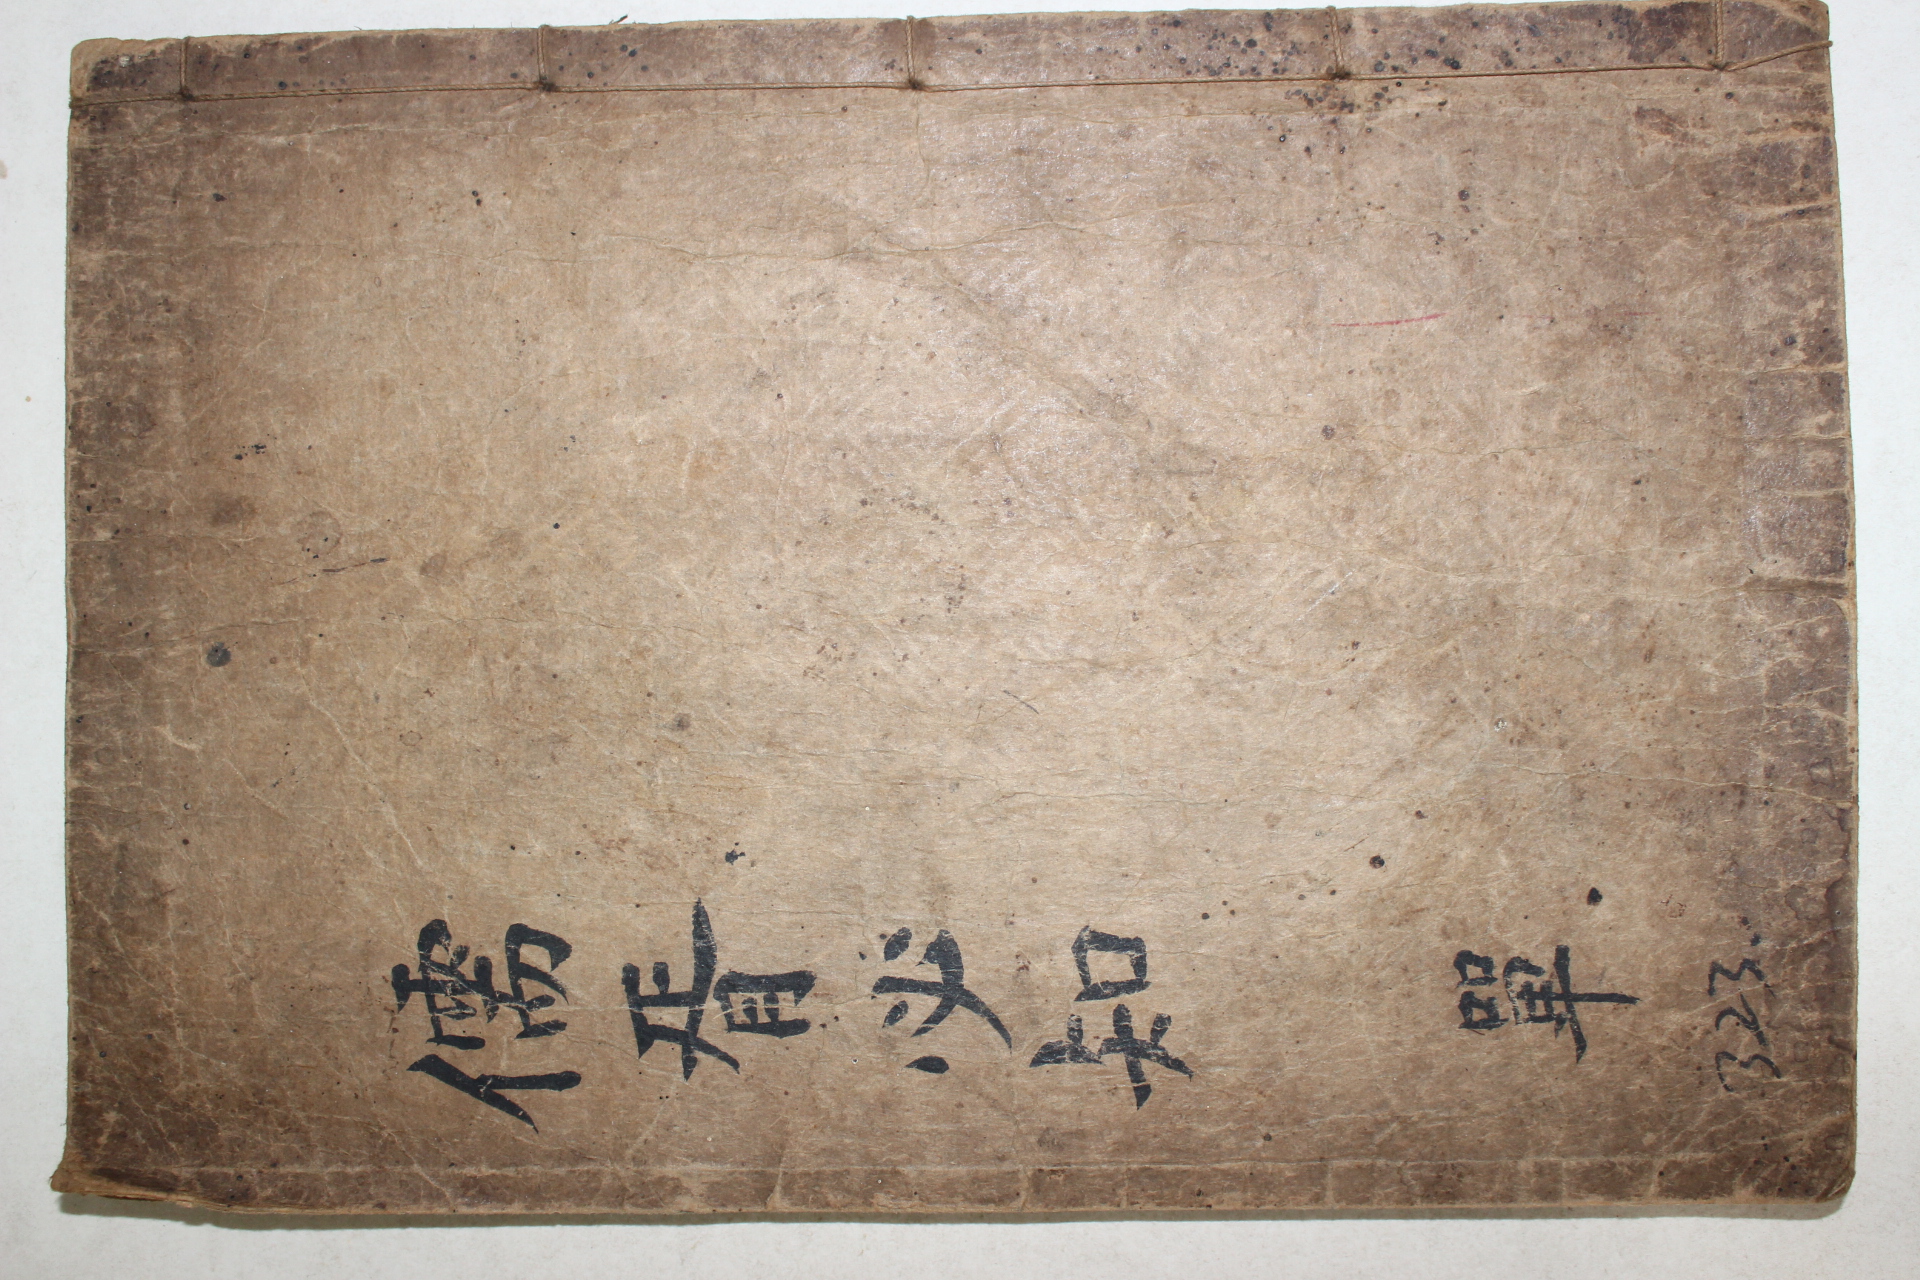 儒胥必知
單
323.